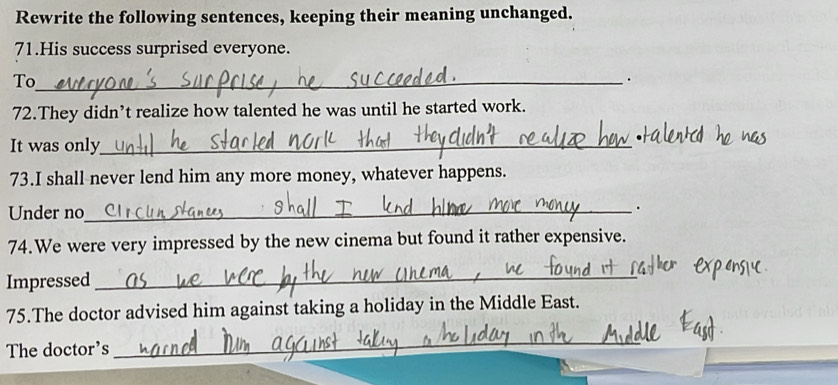 Rewrite the following sentences, keeping their meaning unchanged.
71.His success surprised everyone.
To everyone's surprise, he succeeded.
72.They didn't realize how talented he was until he started work.
It was only until he started work that they didn't realize how talented he was
73.I shall never lend him any more money, whatever happens.
Under no circumstances shall I lend him more money.
74.We were very impressed by the new cinema but found it rather expensive.
Impressed as we were by the new cinema, we found it rather expensive.
75.The doctor advised him against taking a holiday in the Middle East.
The doctor's warned him against taking a holiday in the Middle East.